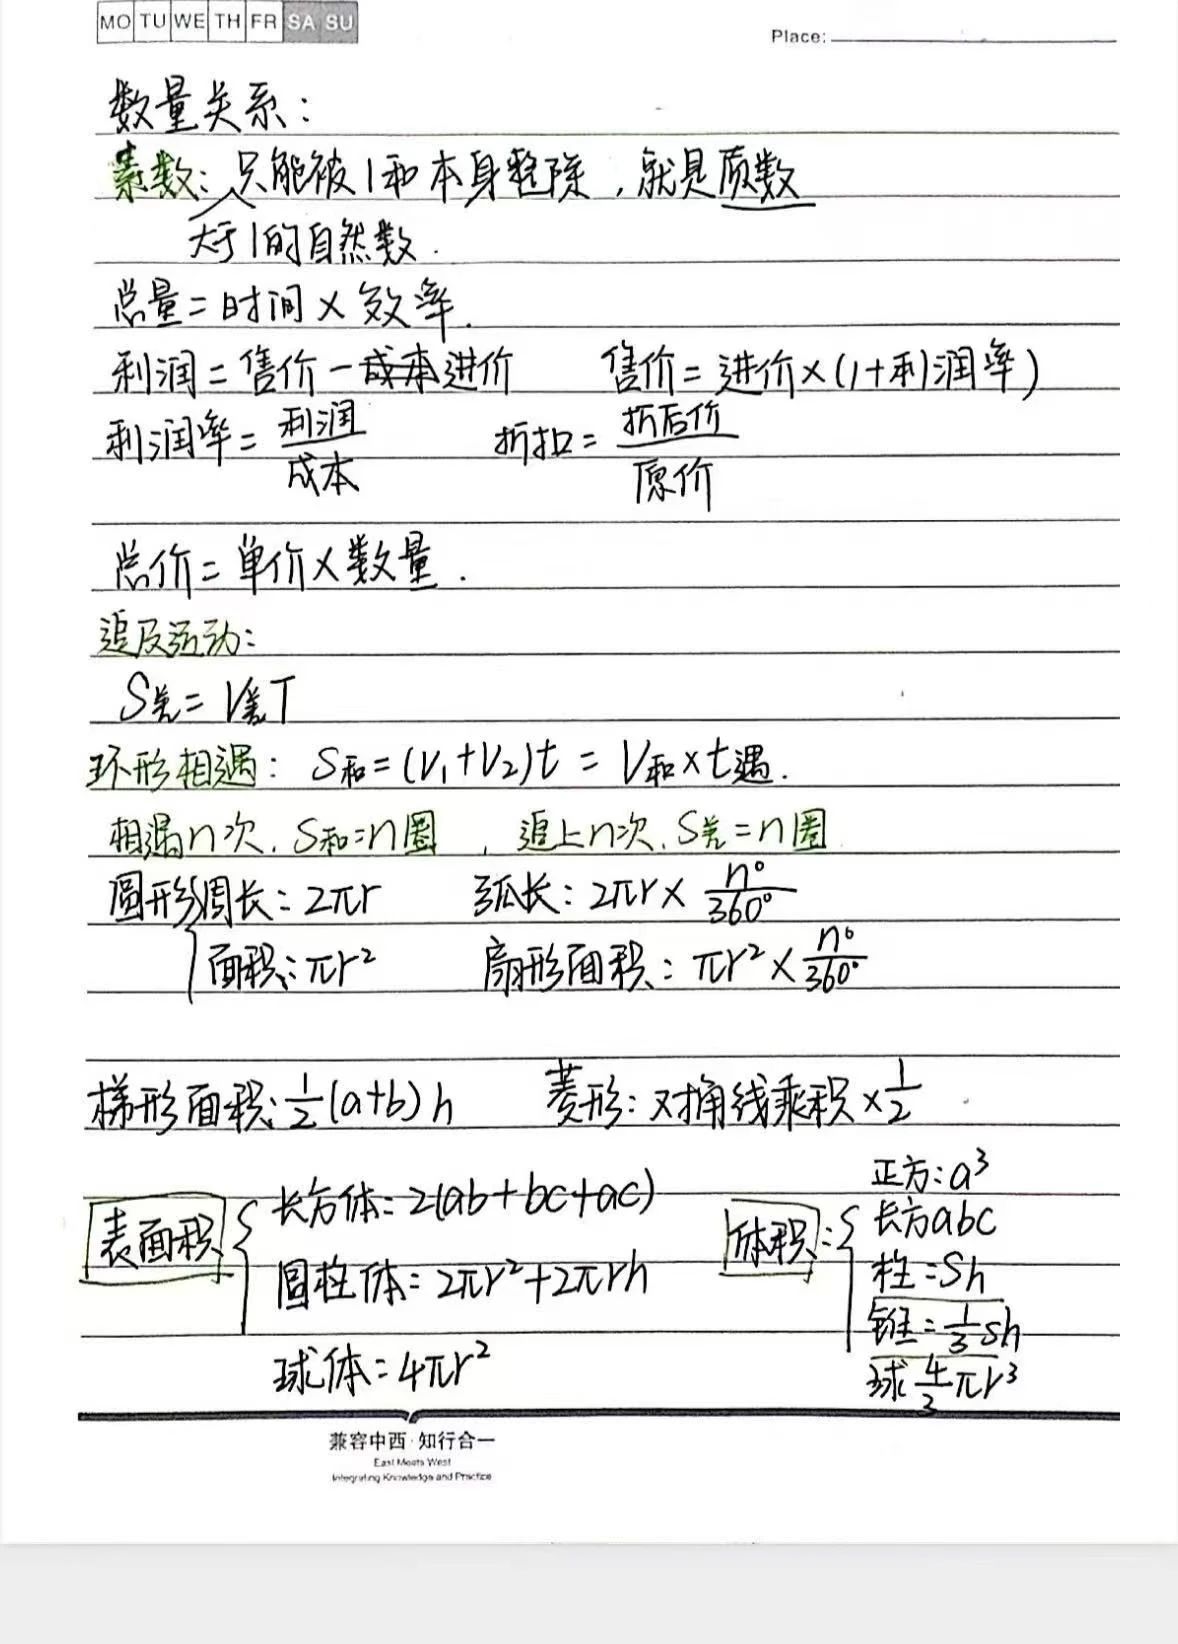 MO TU WE TH FR SA SU
Place:
数量关系：
素数：只能被1和本身整除，就是质数
大于1的自然数.
总量=时间×效率.
利润=售价-成本进价 售价=进价×(1+利润率)
利润率=利润/成本 折扣=折后价/原价
总价=单价×数量.
追及运动：
S差=V差T
环形相遇：S和=(V₁+V₂)t=V和×t遇.
相遇n次，S和=n圈，追上n次，S差=n圈
圆形周长：2πr 弧长：2πr×n°/360°
面积：πr² 扇形面积：πr²×n°/360°
梯形面积：1/2(a+b)h 菱形：对角线乘积×1/2
表面积 长方体：2(ab+bc+ac)
圆柱体：2πr²+2πrh
球体：4πr²
体积： 正方：a³
长方abc
柱=Sh
锥=1/3Sh
球4/3πr³
兼容中西·知行合一
East Meets West
Integrating Knowledge and Practice